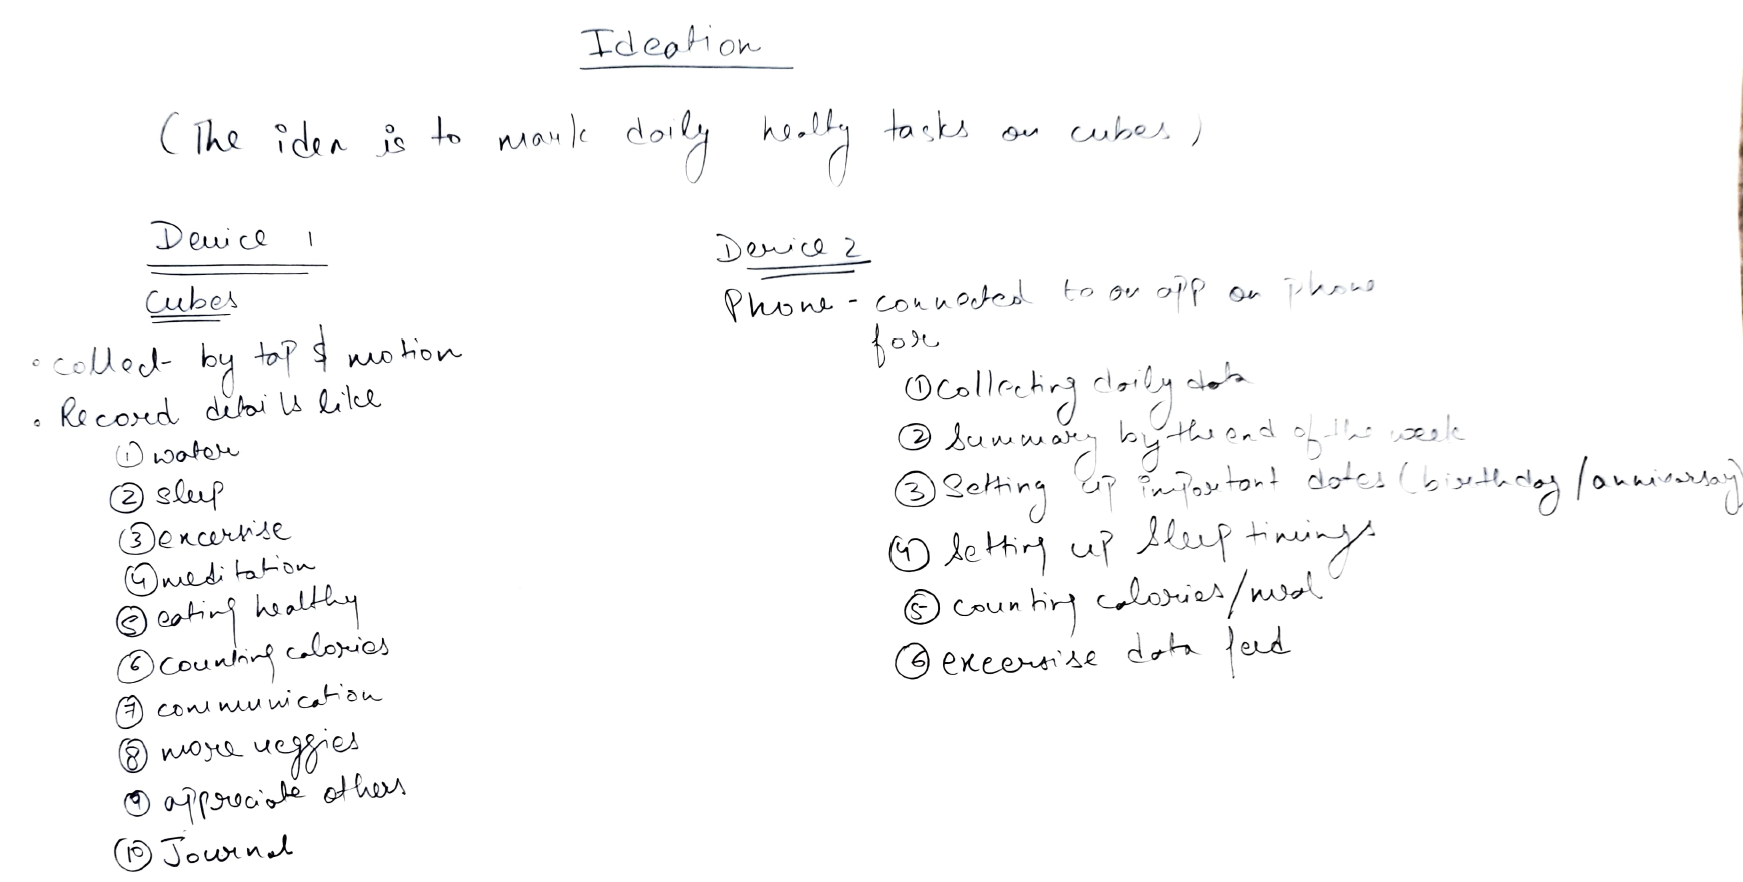 Ideation
(The idea is to mark daily healty tasks on cubes)
Device 1
Cubes
• collect by tap & motion
• Record details like
① water
② sleep
③ excersise
④ meditation
⑤ eating healthy
⑥ counting calories
⑦ communication
⑧ more veggies
⑨ appreciate others
⑩ Journal
Device 2
Phone - connected to an app on phone
for
① collecting daily data
② Summary by the end of the week
③ Setting up important dates (birthday/anniversay)
④ Setting up Sleep timings
⑤ counting calories/meal
⑥ excersise data feed